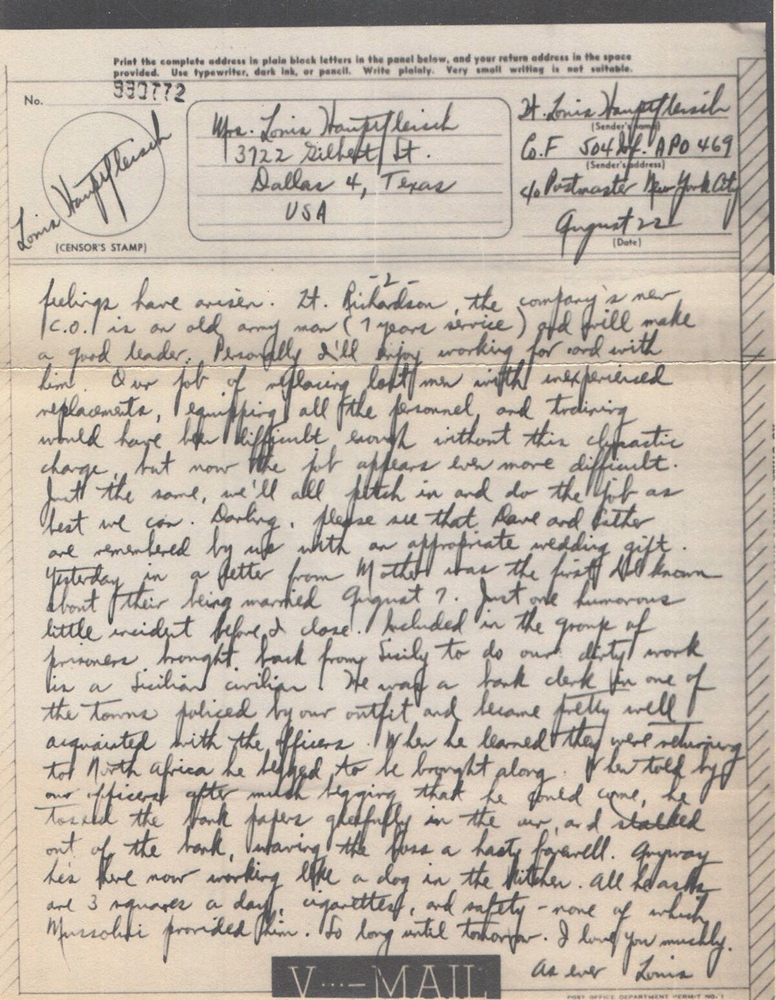 Print the complete address in plain block letters in the panel below, and your return address in the space
provided. Use typewriter, dark ink, or pencil. Write plainly. Very small writing is not suitable.
No.
330772
Louis Hauptfleisch
(CENSOR'S STAMP)
Mrs. Louis Hauptfleisch
3722 Gilbert St.
Dallas 4, Texas
USA
Lt. Louis Hauptfleisch
(Sender's name)
Co.F 504 Inf. APO 469
(Sender's address)
c/o Postmaster New York City
August 22
(Date)
-2-
feelings have arisen. Lt. Richardson, the company's new
C.O. is an old army man (7 years service) and will make
a good leader. Personally I'll enjoy working for and with
him. Our job of replacing lost men with inexperienced
replacements, equipping all the personnel, and training
would have been difficult enough without this
change, but now the job appears even more difficult.
Just the same, we'll all pitch in and do the job as
best we can. Darling, please see that Dave and Esther
are remembered by us with an appropriate wedding gift.
Yesterday in a letter from Mother was the first I'd known
about their being married August 7. Just one humorous
little incident before I close. Included in the group of
prisoners brought back from Sicily to do our dirty work
is a Sicilian civilian. He was a bank clerk in one of
the towns policed by our outfit and became pretty well
acquainted with the officers. When he learned they were returning
to North Africa he begged to be brought along. When told by
our officers after much begging that he could come, he
tossed the bank papers gleefully in the air, and stalked
out of the bank, waving the boss a hasty farewell. Anyway
he's here now working like a dog in the kitchen. All he asks
are 3 squares a day, cigarettes, and safety - none of which
Mussolini provided him. So long until tomorrow. I love you muchly.
As ever Louis
V···—MAIL
POST OFFICE DEPARTMENT PERMIT NO. 1